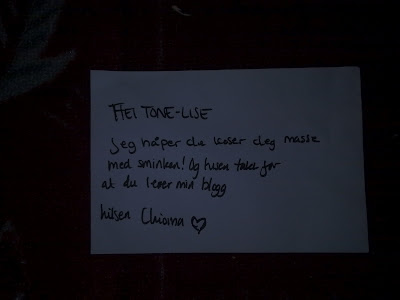 HEI TONE-LISE
Jeg håper du koser deg masse
med sminken! Og tusen takk for
at du leser min blogg
hilsen Chioma